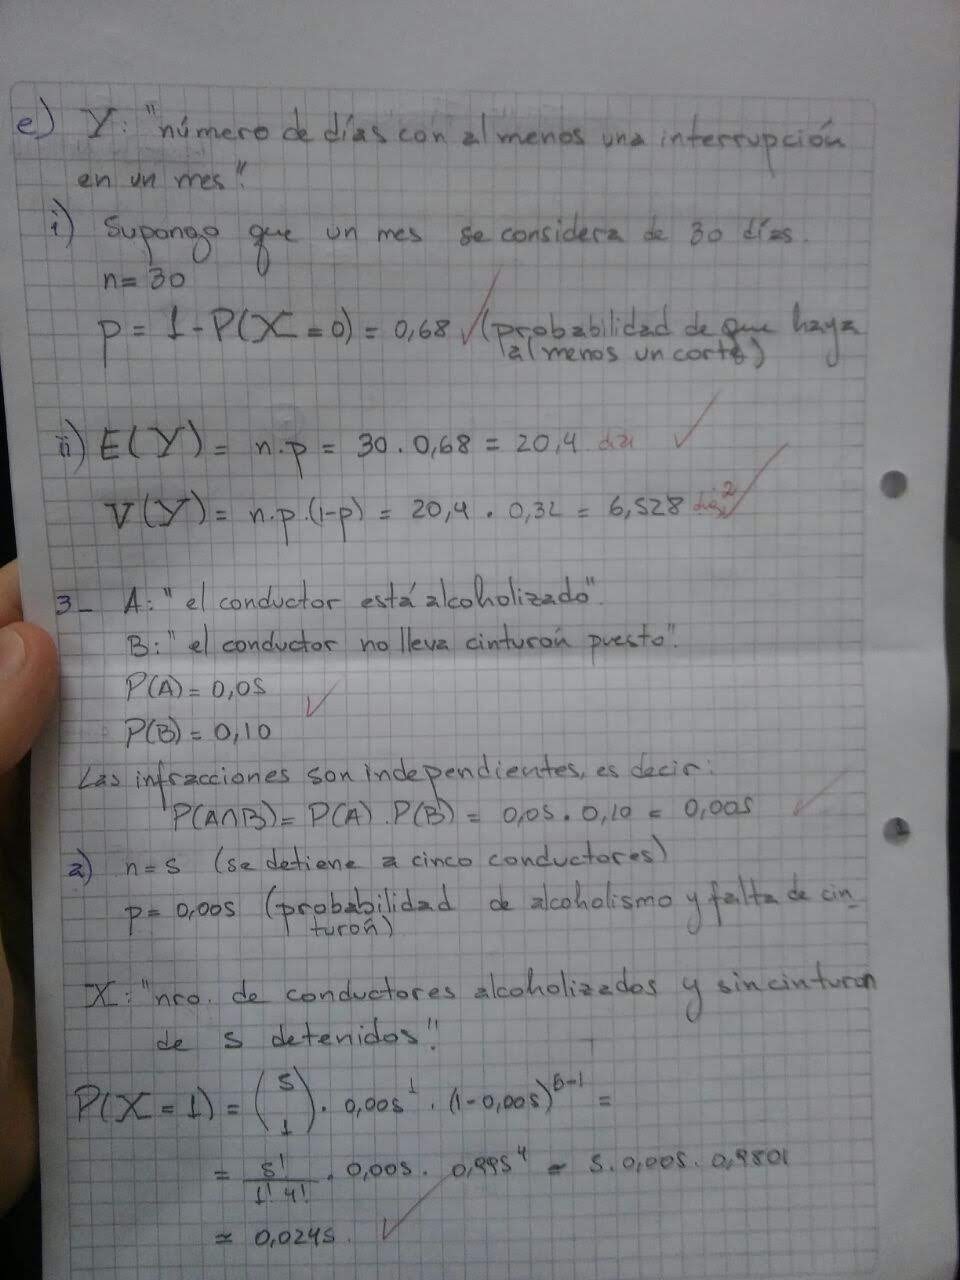 e) Y: "número de días con al menos una interrupción
en un mes".
i) Supongo que un mes se considera de 30 días.
n = 30
p = 1 - P(X = 0) = 0,68 ✓ (probabilidad de que haya
al menos un corte)
ii) E(Y) = n.p = 30 . 0,68 = 20,4 ✓
V(Y) = n.p.(1-p) = 20,4 . 0,32 = 6,528 días² ✓
3- A: "el conductor está alcoholizado".
B: "el conductor no lleva cinturón puesto".
P(A) = 0,05 ✓
P(B) = 0,10
Las infracciones son independientes, es decir:
P(A∩B) = P(A) . P(B) = 0,05 . 0,10 = 0,005 ✓
a) n = 5 (se detiene a cinco conductores)
p = 0,005 (probabilidad de alcoholismo y falta de cin-
turón)
X: "nro. de conductores alcoholizados y sin cinturon
de 5 detenidos".
P(X = 1) = (5 1) . 0,005¹ . (1-0,005)⁵⁻¹ =
= 5!/1! 4! . 0,005 . 0,995⁴ = 5 . 0,005 . 0,9801
≃ 0,0245. ✓